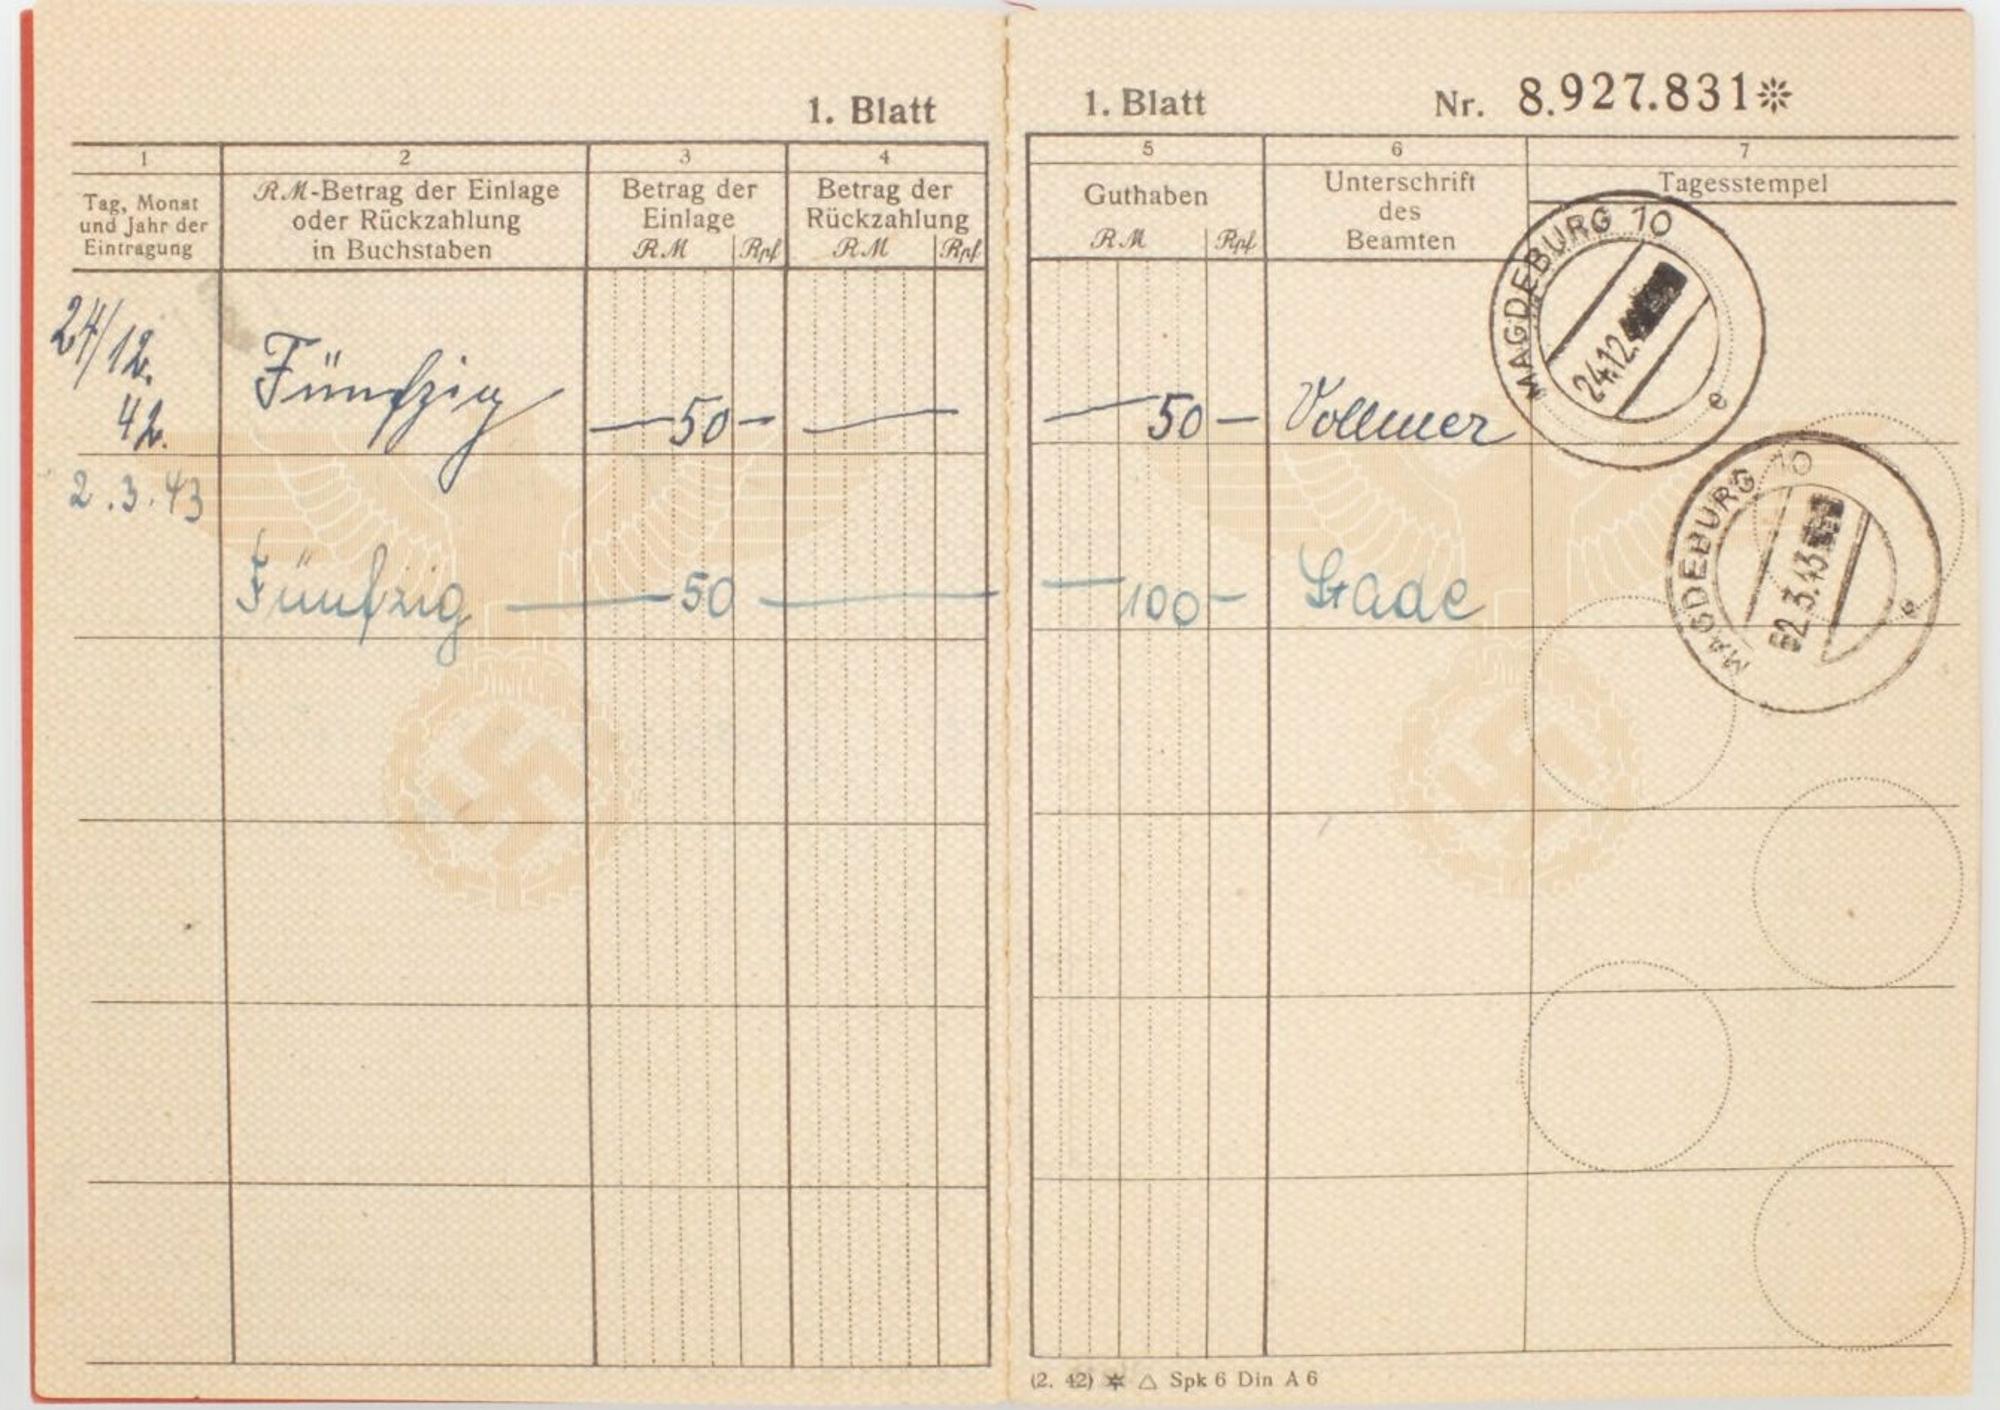 1. Blatt
1
2
3
4
Tag, Monat
und Jahr der
Eintragung
RM-Betrag der Einlage
oder Rückzahlung
in Buchstaben
Betrag der
Einlage
RM Rpf
Betrag der
Rückzahlung
RM Rpf
24/12.
42.
Fünfzig — 50 — —
2.3.43
Fünfzig — 50 —
1. Blatt
Nr. 8.927.831
5
6
7
Guthaben
RM Rpf
Unterschrift
des
Beamten
Tagesstempel
— 50 — Vollmer
MAGDEBURG 10
24.12.4
e
— 100 — Gade
MAGDEBURG 10
2.3.43
e
(2. 42) ✶ △ Spk 6 Din A 6